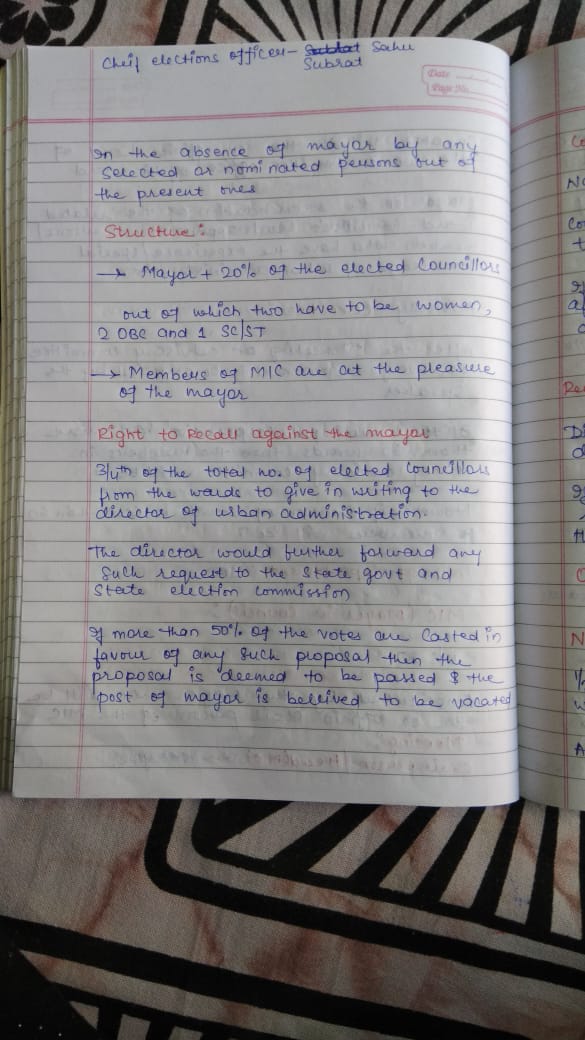 Cheif elections officer - Sahu
Subrat
Date
Page No.
In the absence of mayor by any
selected or nominated persons out of
the present ones
Structure :
→ Mayor + 20% of the elected Councillors
out of which two have to be women,
2 OBC and 1 SC/ST
→ Members of MIC are at the pleasure
of the mayor
Right to Recall against the mayor
3/4th of the total no. of elected Councillors
from the wards to give in writing to the
director of urban administration.
The director would further forward any
such request to the State govt and
State election commission
If more than 50% of the votes are casted in
favour of any such proposal then the
proposal is deemed to be passed & the
post of mayor is beleived to be vacated